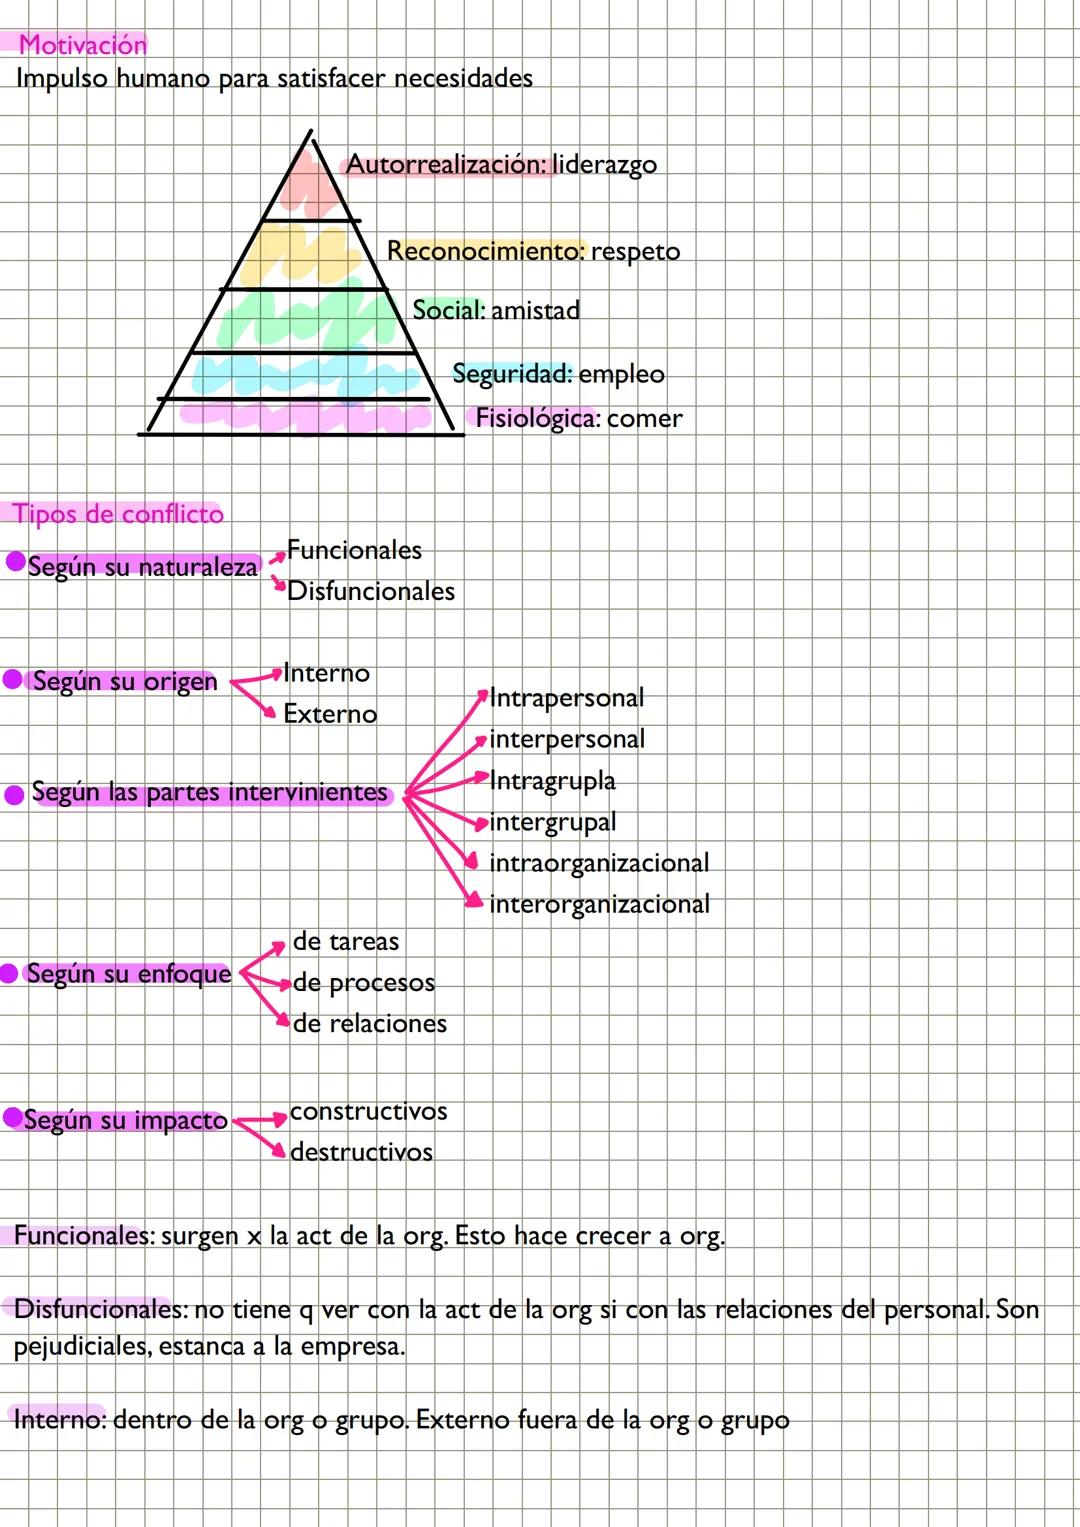 Motivación
Impulso humano para satisfacer necesidades
Autorrealización: liderazgo
Reconocimiento: respeto
Social: amistad
Seguridad: empleo
Fisiológica: comer
Tipos de conflicto
Según su naturaleza
Funcionales
Disfuncionales
Según su origen
Interno
Externo
Según las partes intervinientes
Intrapersonal
interpersonal
Intragrupla
intergrupal
intraorganizacional
interorganizacional
Según su enfoque
de tareas
de procesos
de relaciones
Según su impacto
constructivos
destructivos
Funcionales: surgen x la act de la org. Esto hace crecer a org.
Disfuncionales: no tiene q ver con la act de la org si con las relaciones del personal. Son
pejudiciales, estanca a la empresa.
Interno: dentro de la org o grupo. Externo fuera de la org o grupo